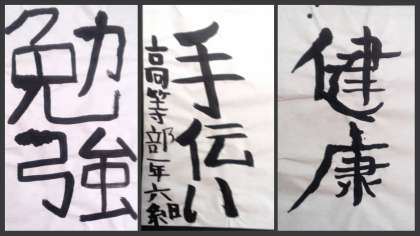 勉強
手伝い
高等部一年六組
健康